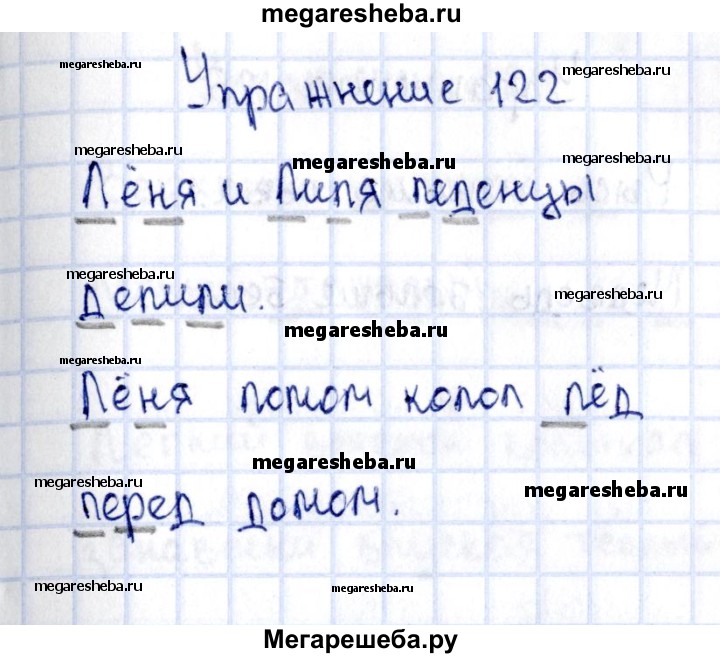 megaresheba.ru
megaresheba.ru
megaresheba.ru
Упражнение 122
megaresheba.ru
megaresheba.ru
Лёня и Лиля леденцы
megaresheba.ru
megaresheba.ru
делили.
megaresheba.ru
megaresheba.ru
Лёня ломом колол лёд
megaresheba.ru
megaresheba.ru
megaresheba.ru
перед домом.
megaresheba.ru
megaresheba.ru
Мегарешеба.ру